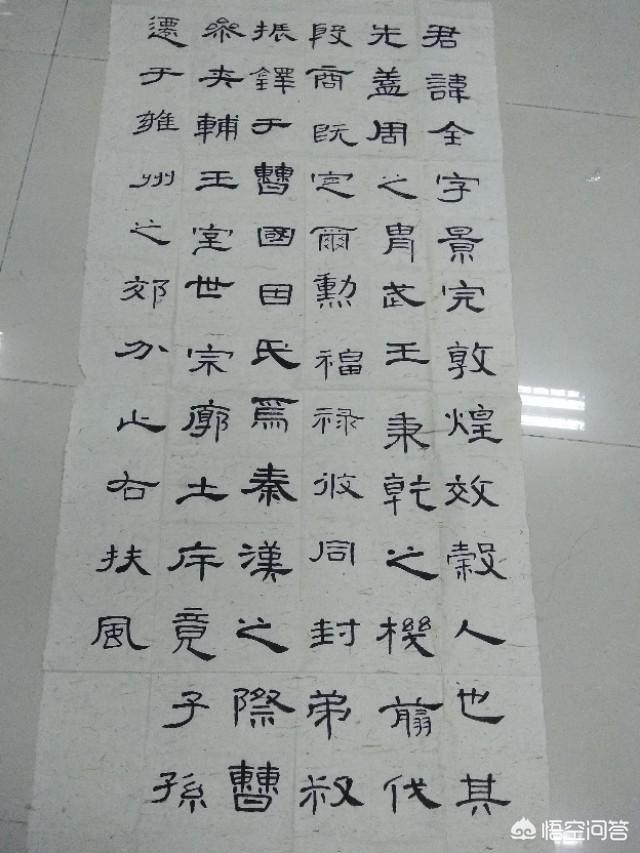 君諱全字景完敦煌效穀人也其
先蓋周之胄武王秉乾之機翦伐
殷商既定爾勳福禄攸同封弟叔
振鐸于曹國因氏焉秦漢之際曹
參夾輔王室世宗廓土斥竟子孫
遷于雍州之郊分止右扶風
悟空问答